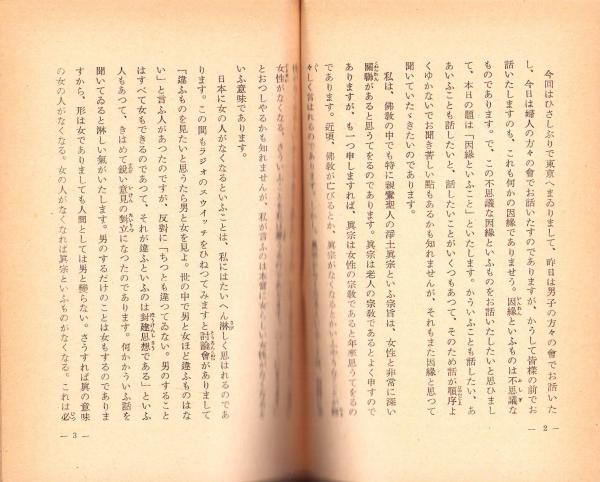 今回はひさしぶりで東京へまゐりまして、昨日は男子の方々の會でお話いた
し、今日は婦人の方々の會でお話いたすのでありますが、かうして皆様の前でお
話いたしますのも、これも何かの因緣でありませう。因緣といふものは不思議な
ものであります。で、この不思議な因緣といふものをお話いたしたいと思ひまし
て、本日の題は「因緣といふこと」といたします。かういふことも話したい、あ
あいふことも話したいと、話したいことがいくつもあつて、そのため話が順序よ
くゆかないでお聞き苦しい點もあるかも知れませんが、それもまた因緣と思つて
聞いていたゞきたいのであります。
私は、佛敎の中でも特に親鸞聖人の淨土眞宗といふ宗旨は、女性と非常に深い
關聯があると思うてをるのであります。眞宗は老人の宗敎であるとよく申すので
ありますが、も一つ申しますれば、眞宗は女性の宗敎であると年來思うてをるの
であります。近頃、佛敎が亡びるとか、眞宗がなくなるとか
— 2 —
女性がなくなる、
とおつしやるかも知れませんが、私が言ふのは本當に女
いふ意味であります。
日本に女の人がなくなるといふことは、私にはたいへん淋しく思はれるのであ
ります。この間もラジオのスウイッチをひねつてみますと討論會がありまして
「違ふものを見たいと思うたら男と女を見よ。世の中で男と女ほど違ふものはな
い」と言ふ人があつたのですが、反對に「ちつとも違つてゐない。男のすること
はすべて女もできるのであつて、それが違ふといふのは封建思想である」といふ
人もあつて、きはめて銳い意見の對立になつたのであります。何かかういふ話を
聞いてゐると淋しい氣がいたします。男のするだけのことは女もするのでありま
すから、形は女でありましても人間としては男と變らない。さうすれば眞の意味
の女の人がなくなる。女の人がなくなれば眞宗といふものがなくなる。これは必
— 3 —